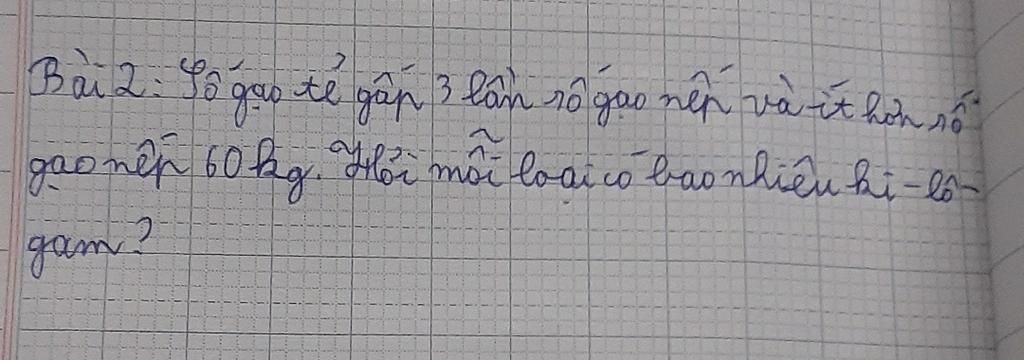 Bài 2: Số gạo tẻ gấp 3 lần số gạo nếp và ít hơn số
gạo nếp 60 kg. Hỏi mỗi loại có bao nhiêu ki-lô-
gam?